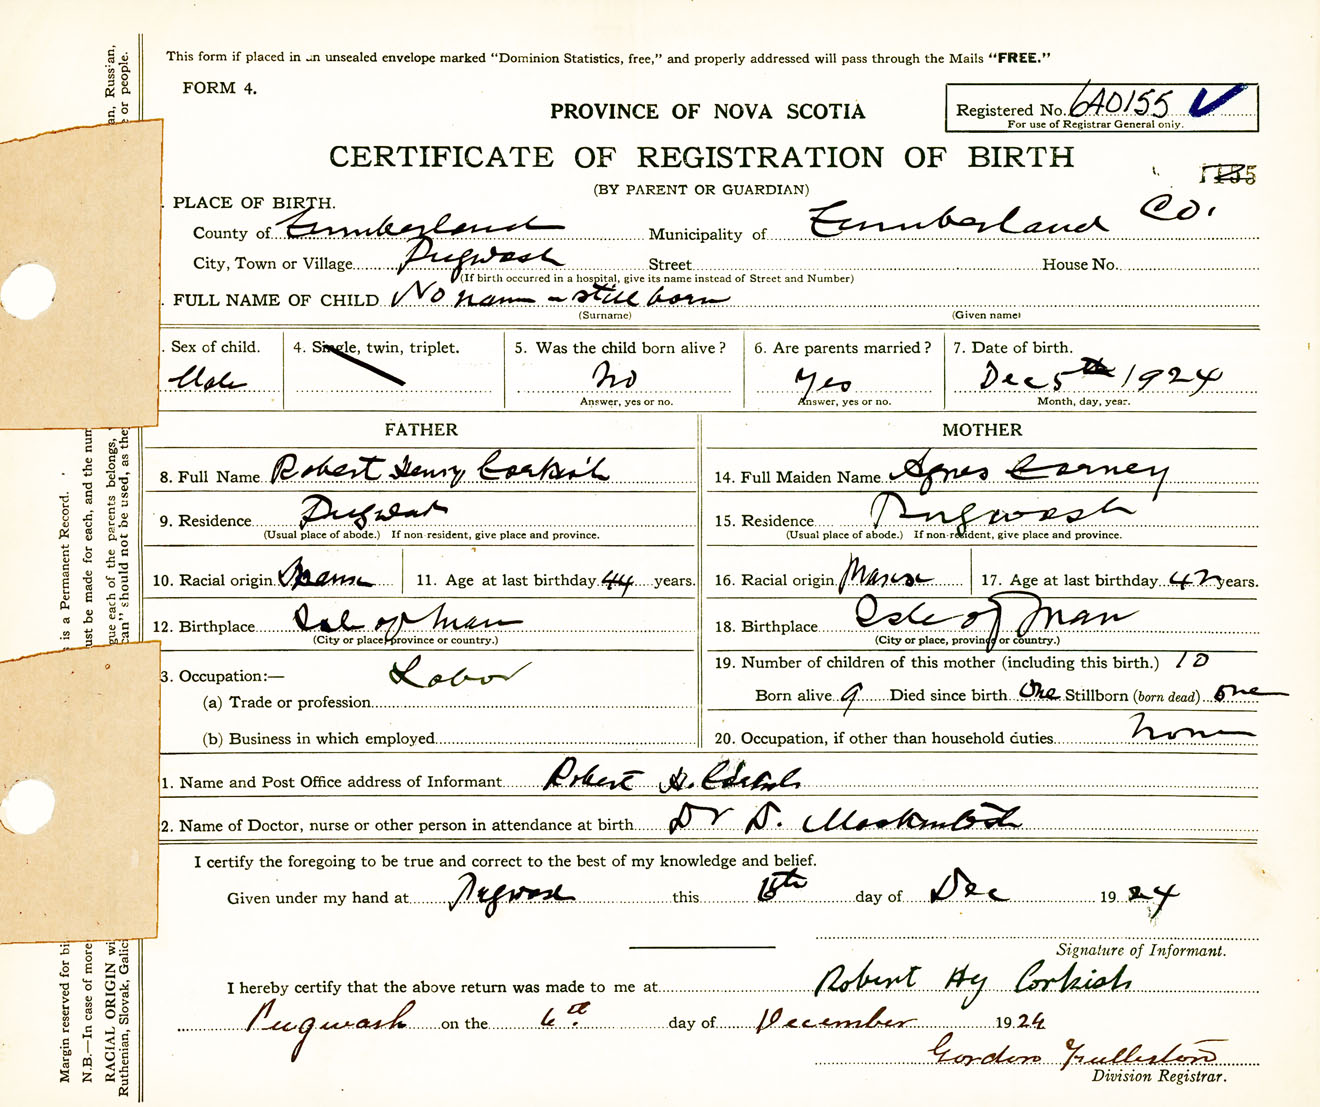 This form if placed in an unsealed envelope marked "Dominion Statistics, free," and properly addressed will pass through the Mails "FREE."
FORM 4.
PROVINCE OF NOVA SCOTIA
Registered No. 6A0155
For use of Registrar General only.
CERTIFICATE OF REGISTRATION OF BIRTH
(BY PARENT OR GUARDIAN)
PLACE OF BIRTH.
County of Cumberland Municipality of Cumberland Co.
City, Town or Village Pugwash Street House No.
(If birth occurred in a hospital, give its name instead of Street and Number)
FULL NAME OF CHILD No name - still born
(Surname) (Given name)
Sex of child. 4. Single, twin, triplet. 5. Was the child born alive? 6. Are parents married? 7. Date of birth.
Male No Yes Dec 5th 1924
Answer, yes or no. Answer, yes or no. Month, day, year.
FATHER MOTHER
8. Full Name Robert Henry Corkish 14. Full Maiden Name Agnes Carney
9. Residence Pugwash 15. Residence Pugwash
(Usual place of abode.) If non-resident, give place and province. (Usual place of abode.) If non-resident, give place and province.
10. Racial origin 11. Age at last birthday 44 years. 16. Racial origin 17. Age at last birthday 42 years.
12. Birthplace Isle of Man 18. Birthplace Isle of Man
(City or place, province or country.) (City or place, province or country.)
3. Occupation:— Labor 19. Number of children of this mother (including this birth.) 10
(a) Trade or profession Born alive 9 Died since birth one Stillborn (born dead) one
(b) Business in which employed 20. Occupation, if other than household duties none
1. Name and Post Office address of Informant Robert H. Corkish
2. Name of Doctor, nurse or other person in attendance at birth Dr D. Mackintosh
I certify the foregoing to be true and correct to the best of my knowledge and belief.
Given under my hand at Pugwash this day of Dec 1924
Signature of Informant.
I hereby certify that the above return was made to me at Robert Hy Corkish
Pugwash on the 6th day of December 1924
Gordon Fullerton
Division Registrar.
Margin reserved for bi
s is a Permanent Record.
N.B.—In case of more
ust be made for each, and the num
RACIAL ORIGIN wi
gue each of the parents belongs,
an, Russian,
Ruthenian, Slovak, Galic
can" should not be used, as the
e or people.